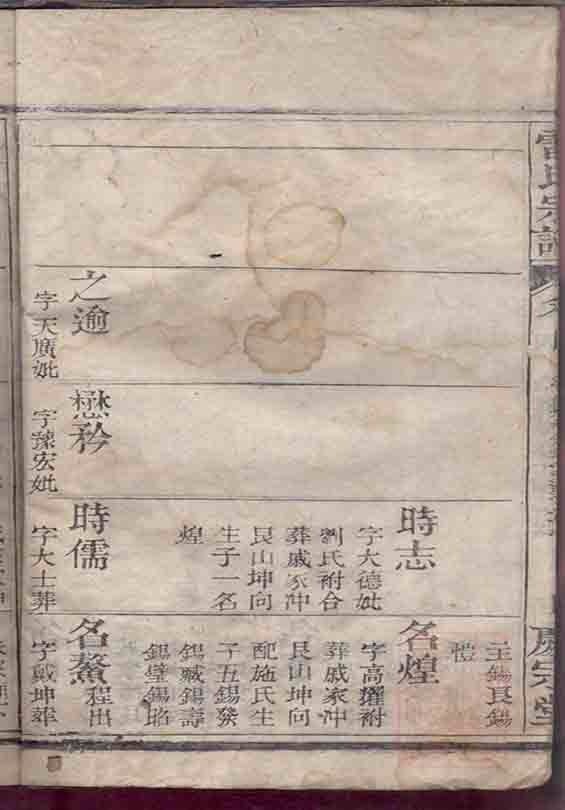 氏宗譜
宗堂
之逾
字天廣妣
懋矜
字豫宏妣
時志
字大德妣
劉氏祔合
葬戚家冲
艮山坤向
生子一名
煌
時儒
字大士葬
錫良錫
愷
名煌
字高擢祔
葬戚家冲
艮山坤向
配施氏生
子五錫發
錫臧錫壽
錫璧錫昭
名鰲程出
字戴坤葬